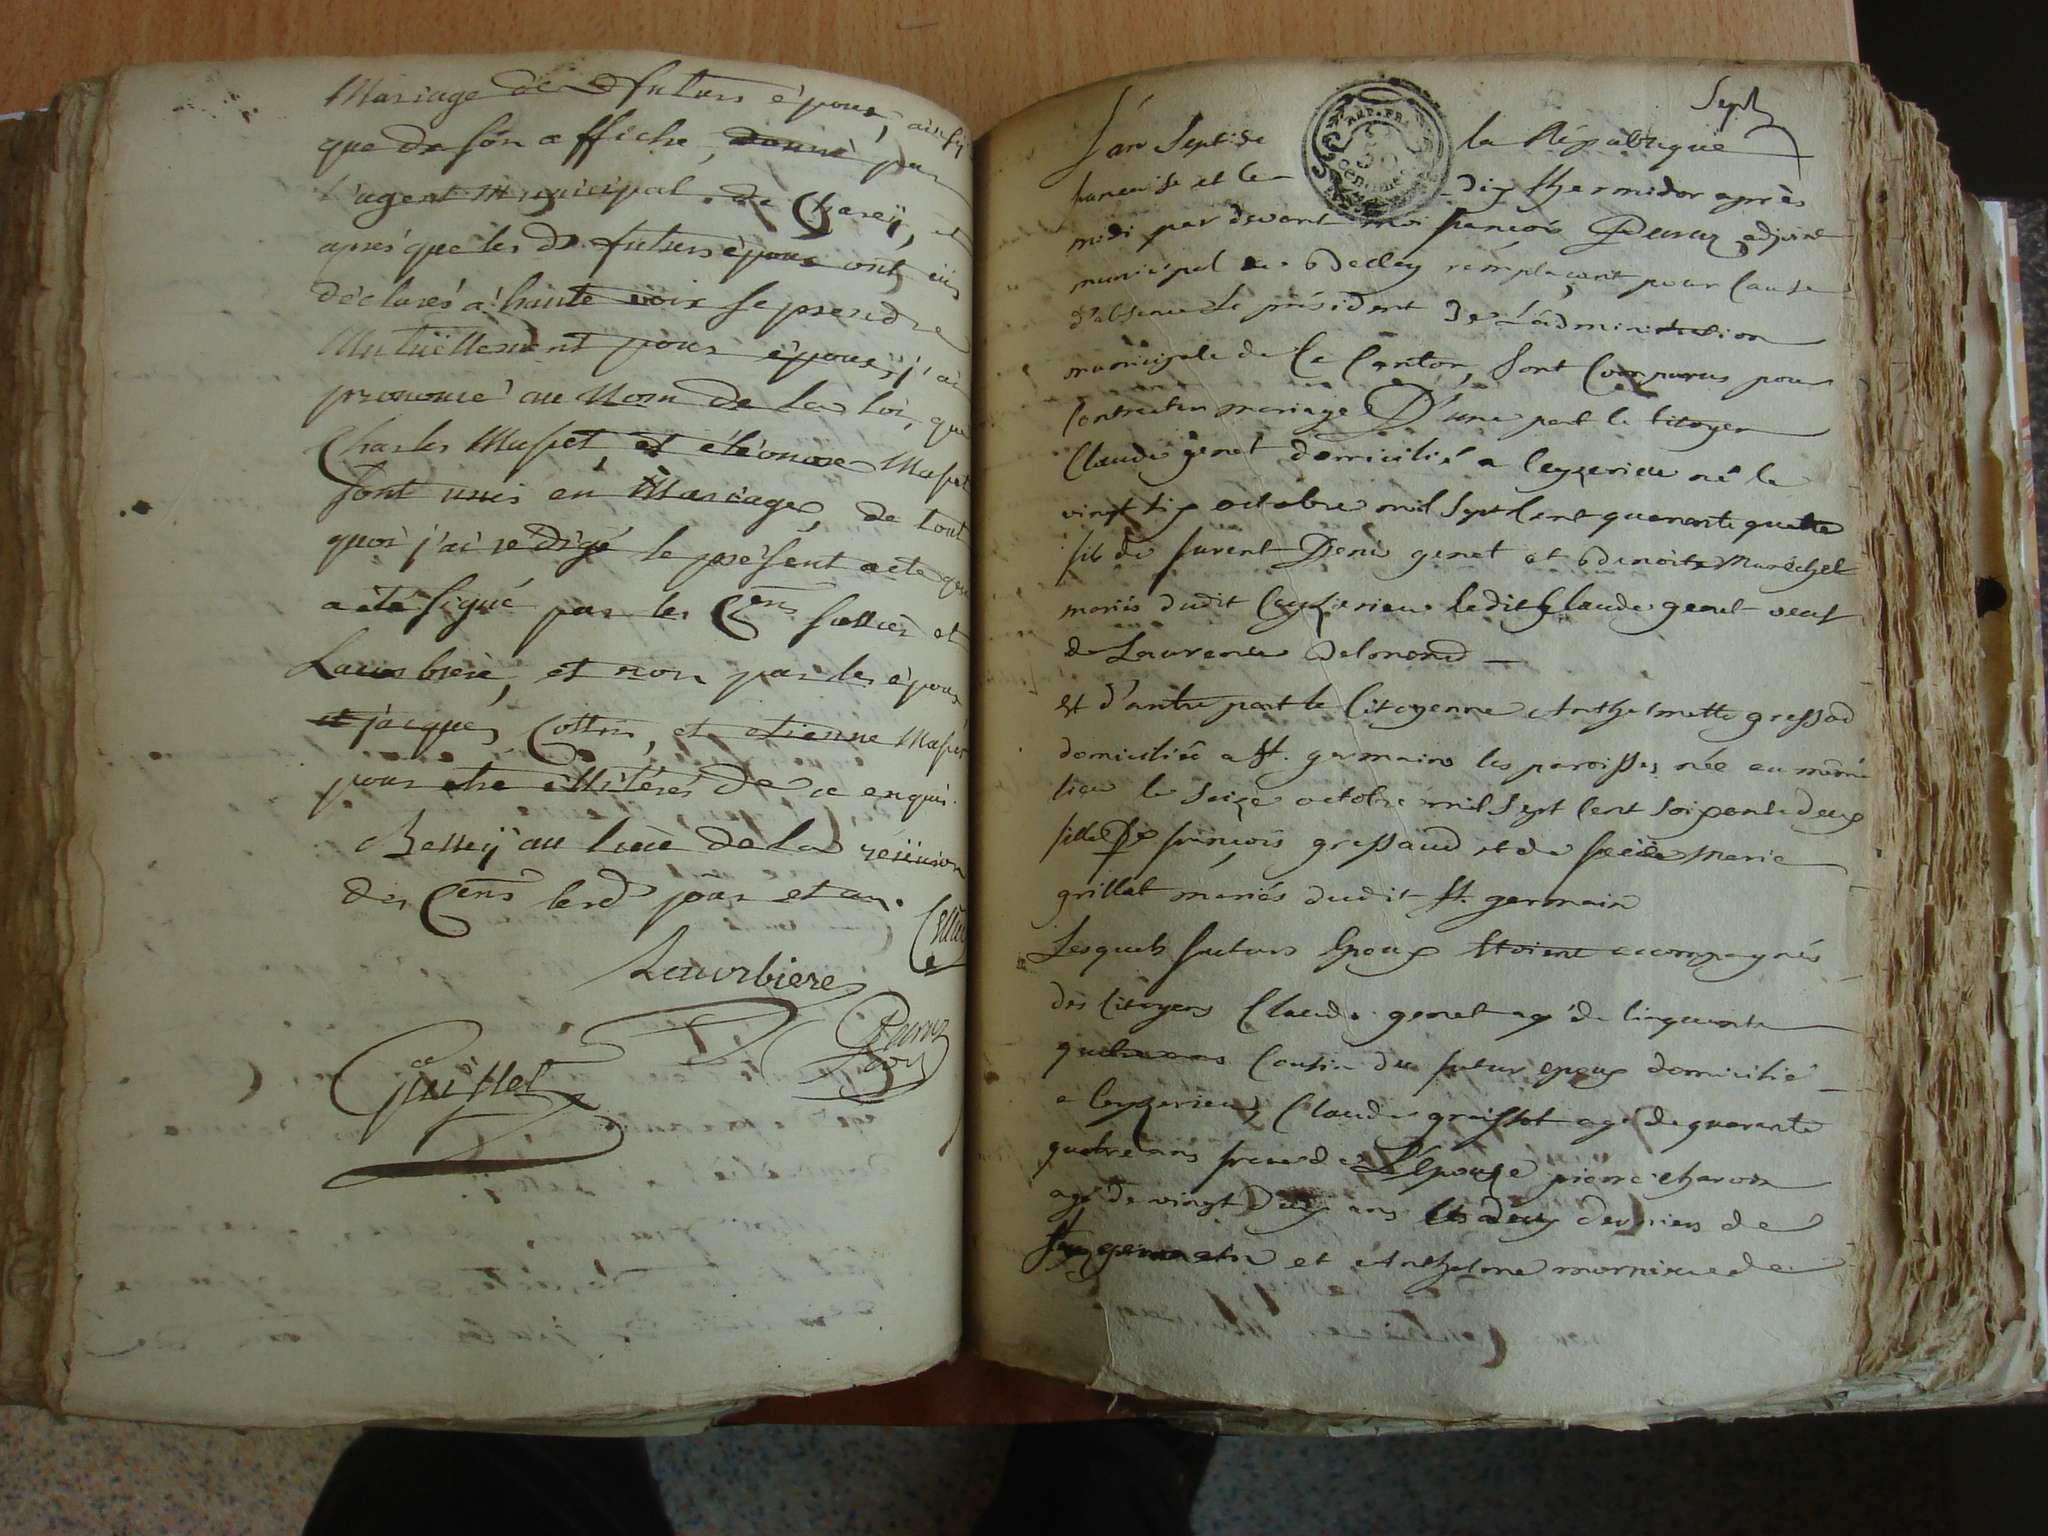 Mariage des d futurs époux, ainsy
que de son affiche, donné par
l'agent Municipal de Chareÿ, et
après que les ds futurs époux ont eus
déclarés a haute voix se prendre
Mutuëllement pour époux, j'ai
prononcé au Nom de la loi, que
Charles Masset, et éléonore Masset
sont unis en Mariage, de tout
quoi j'ai redigé le présent acte que
a été signé par les Cens et
Lavorbiere, et non par les époux
et jacques Cottin, et etienne Masset
pour etre illitérés de ce enquis.
Belleÿ au lieu de la réünion
des Cens les d jour et an.
Lavorbiere
Peruz
Guillet
Sept
L'an Sept de la République
REP. FRA.
50
Centimes
francaise et le dix thermidor après
midi par devant moi francois Peruz adjoint
municipal de Belley remplaçant pour cause
d'absence le président de l'administration
municipale de Ce Canton, sont Comparus pour
Contracter mariage D'une part le Citoyen
Claude genet domicilié a Ceyzerieu né le
vingt six octobre mil Sept Cent quarante quatre
fils de furent Denis genet et Benoite Maréchal
mariés dudit Ceyzerieu ledit Claude genet veuf
de Laurence Delomond
et d'autre part la Citoyenne Anthelmette gressod
domiciliée a St. germain les paroisses née au même
lieu le Seize octobre mil Sept Cent Soixante deux
fille De francois gressaud et de feue Marie
grillet mariés dudit St. germain
Lesquels futurs Epoux Etoient accompagnés
des Citoyens Claude genet agé de Cinquante
quatre ans Cousin du futur epoux domicilié
a Ceyzerieu, Claude graissot agé de quarante
quatre ans frere de L'Epouse pierre charvin
agé de vingt Deux ans les deux derniers de
St germain et Anthelme mornieu de